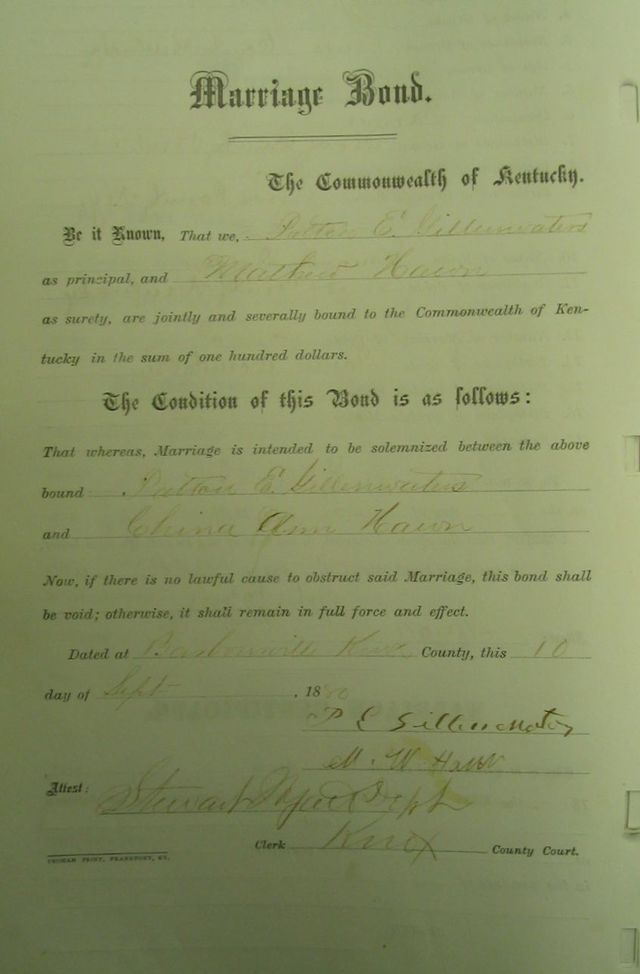 Marriage Bond.
The Commonwealth of Kentucky.
Be it Known, That we, Patton E. Gillenwaters
as principal, and Mathew Hawn
as surety, are jointly and severally bound to the Commonwealth of Ken-
tucky in the sum of one hundred dollars.
The Condition of this Bond is as follows:
That whereas, Marriage is intended to be solemnized between the above
bound Patton E. Gillenwaters
and China Ann Hawn
Now, if there is no lawful cause to obstruct said Marriage, this bond shall
be void; otherwise, it shall remain in full force and effect.
Dated at Barbourville Knox County, this 10
day of Sept, 1880
P E Gillenwaters
M. W Hawn
Attest:
Stewart
Clerk Knox County Court.
PRINT, FRANKFORT, KY.